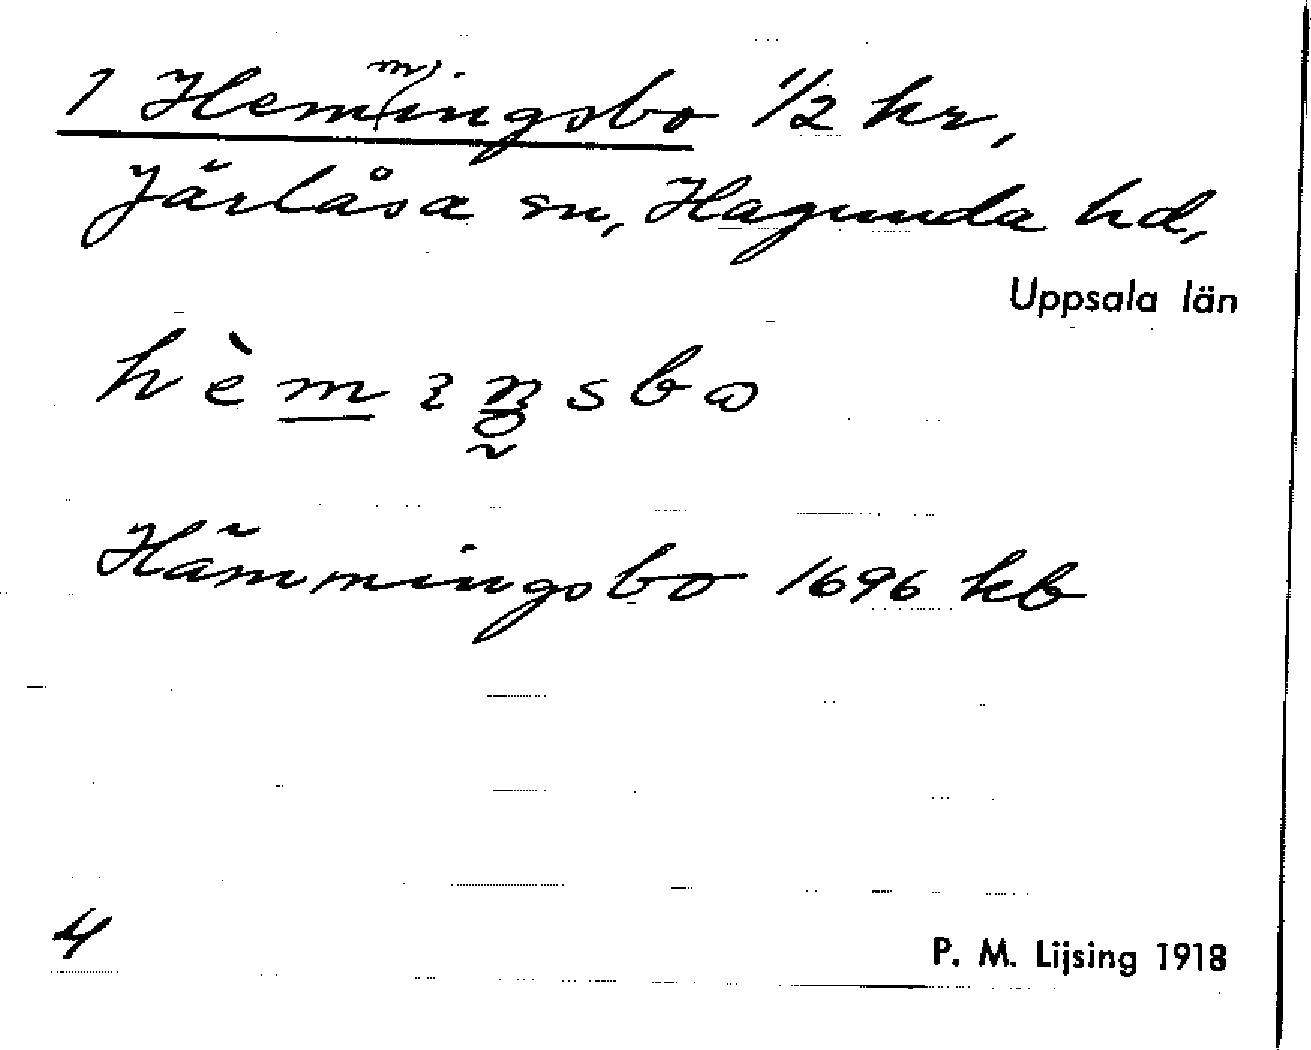 1 Hemmingsbo 1/2 hr,
Järlåsa sn, Hagunda hd,
Uppsala län
Hämmingsbo 1696 kb
4
P. M. Lijsing 1918